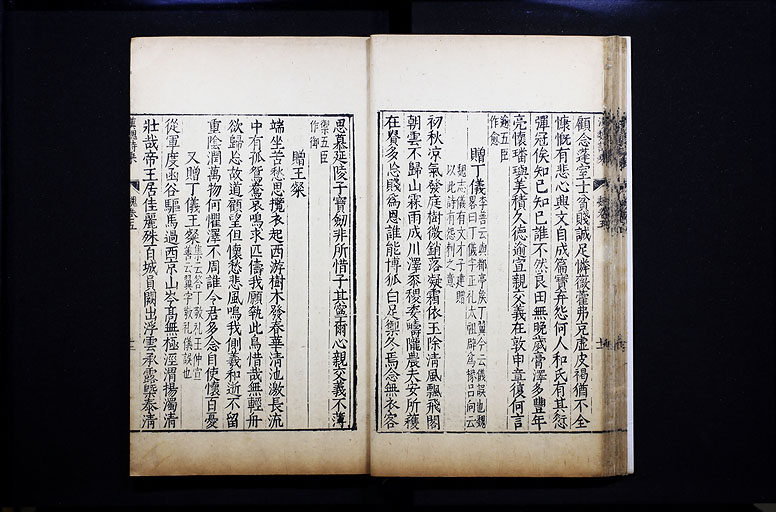 顧念蓬室士貧賤誠足憐薇藿弗充虛皮褐猶不全
慷慨有悲心興文自成篇寶弃怨何人和氏有其愆
彈冠俟知己知己誰不然良田無晚歲膏澤多豐年
亮懷璠璵美積久德逾宣親交義在敦申章復何言
逾五臣
作愈
贈丁儀
李善云與都亭侯丁翼今云儀誤也魏
畧曰丁儀字正礼太祖辟為掾呂向云
魏志儀有文才子建贈
以此詩有怨刺之意
初秋涼氣發庭樹微銷落凝霜依玉除清風飄飛閣
朝雲不歸山霖雨成川澤黍稷委疇隴農夫安所穫
在貴多忘賤為恩誰能博狐白足禦冬焉念無衣客
思慕延陵子寶劒非所惜子其寧爾心親交義不薄
禦五臣
作御
贈王粲
端坐苦愁思攬衣起西游樹木發春華清池激長流
中有孤鴛鴦哀鳴求匹儔我願執此鳥惜哉無輕舟
欲歸忘故道顧望但懷愁悲風鳴我側羲和逝不留
重陰潤萬物何懼澤不周誰令君多念自使懷百憂
又贈丁儀王粲
集云荅丁敬礼王仲宣
善云翼字敬礼儀誤也
從軍度函谷驅馬過西京山岑髙無極涇渭揚濁清
壯哉帝王居佳麗殊百城員闕出浮雲承露槩泰清